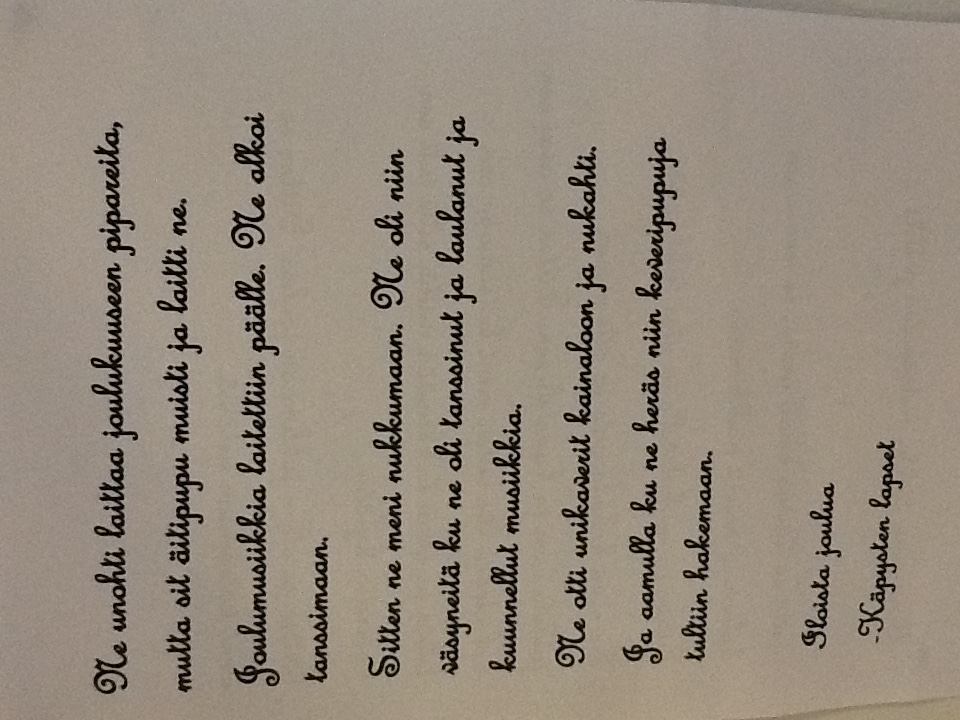 Ne unohti laittaa joulukuuseen pipareita,
mutta sit äitipupu muisti ja laitti ne.
Joulumusiikkia laitettiin päälle. Ne alkoi
tanssimaan.
Sitten ne meni nukkumaan. Ne oli niin
väsyneitä ku ne oli tanssinut ja laulanut ja
kuunnellut musiikkia.
Ne otti unikaverit kainaloon ja nukahti.
Ja aamulla ku ne heräs niin keveripupuja
tultiin hakemaan.
Iloista joulua
-Käpysten lapset